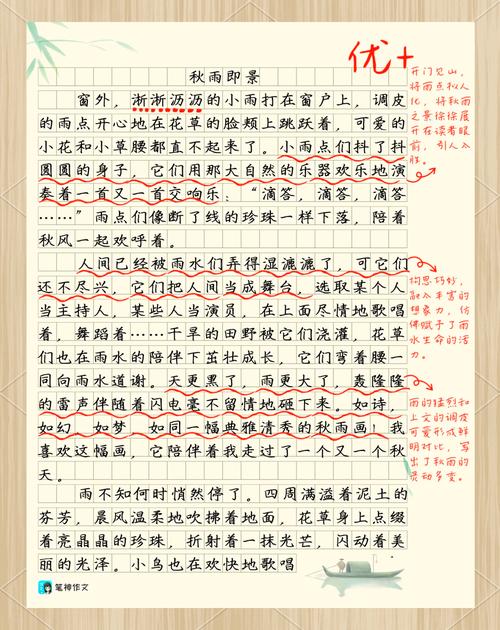 优+
秋雨即景
窗外，淅淅沥沥的小雨打在窗户上，调皮
的雨点开心地在花草的脸颊上跳跃着，可爱的
小花和小草腰都直不起来了。小雨点们抖了抖
圆圆的身子，它们用那大自然的乐器欢乐地演
奏着一首又一首交响乐：“滴答，滴答，滴答
……”雨点们像断了线的珍珠一样下落，陪着
秋风一起欢呼着。
人间已经被雨水们弄得湿漉漉了，可它们
还不尽兴，它们把人间当成舞台，选取某个人
当主持人，某些人当演员，在上面尽情地歌唱
着，舞蹈着……干旱的田野被它们浇灌，花草
们也在雨水的陪伴下茁壮成长，它们弯着腰一
同向雨水道谢。天更黑了，雨更大了，轰隆隆
的雷声伴随着闪电毫不留情地砸下来。如诗，
如幻，如梦，如同一幅典雅清秀的秋雨画！我
喜欢这幅画，它陪伴着我走过了一个又一个秋
天。
雨不知何时悄然停了。四周满溢着泥土的
芬芳，晨风温柔地吹拂着地面，花草身上点缀
着亮晶晶的珍珠，折射着一抹光芒，闪动着美
丽的光泽。小鸟也在欢快地歌唱
开门见山，
将雨点拟人
化，将秋雨
之景徐徐展
开在读者眼
前，引人入
胜。
构思巧妙，
融入丰富的
想象力，仿
佛赋予了雨
水生命的活
力。
雨的猛烈和
上文的调皮
可爱形成鲜
明对比，写
出了秋雨的
灵动多变。
笔神作文